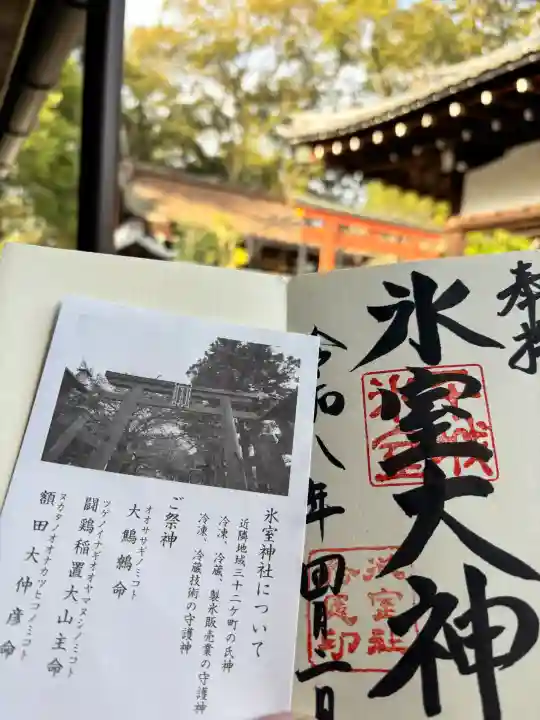 奉拝
氷室大神
令和八年四月二日
氷室神社について
近隣地域三十二ケ町の氏神
冷凍、冷蔵、製氷販売業の守護神
冷凍、冷蔵技術の守護神
ご祭神
オオササギノミコト
大鷦鷯命
ツゲノイナギオオヤマヌシノミコト
闘鶏稲置大山主命
ヌカタノオオナカツヒコノミコト
額田大仲彦命